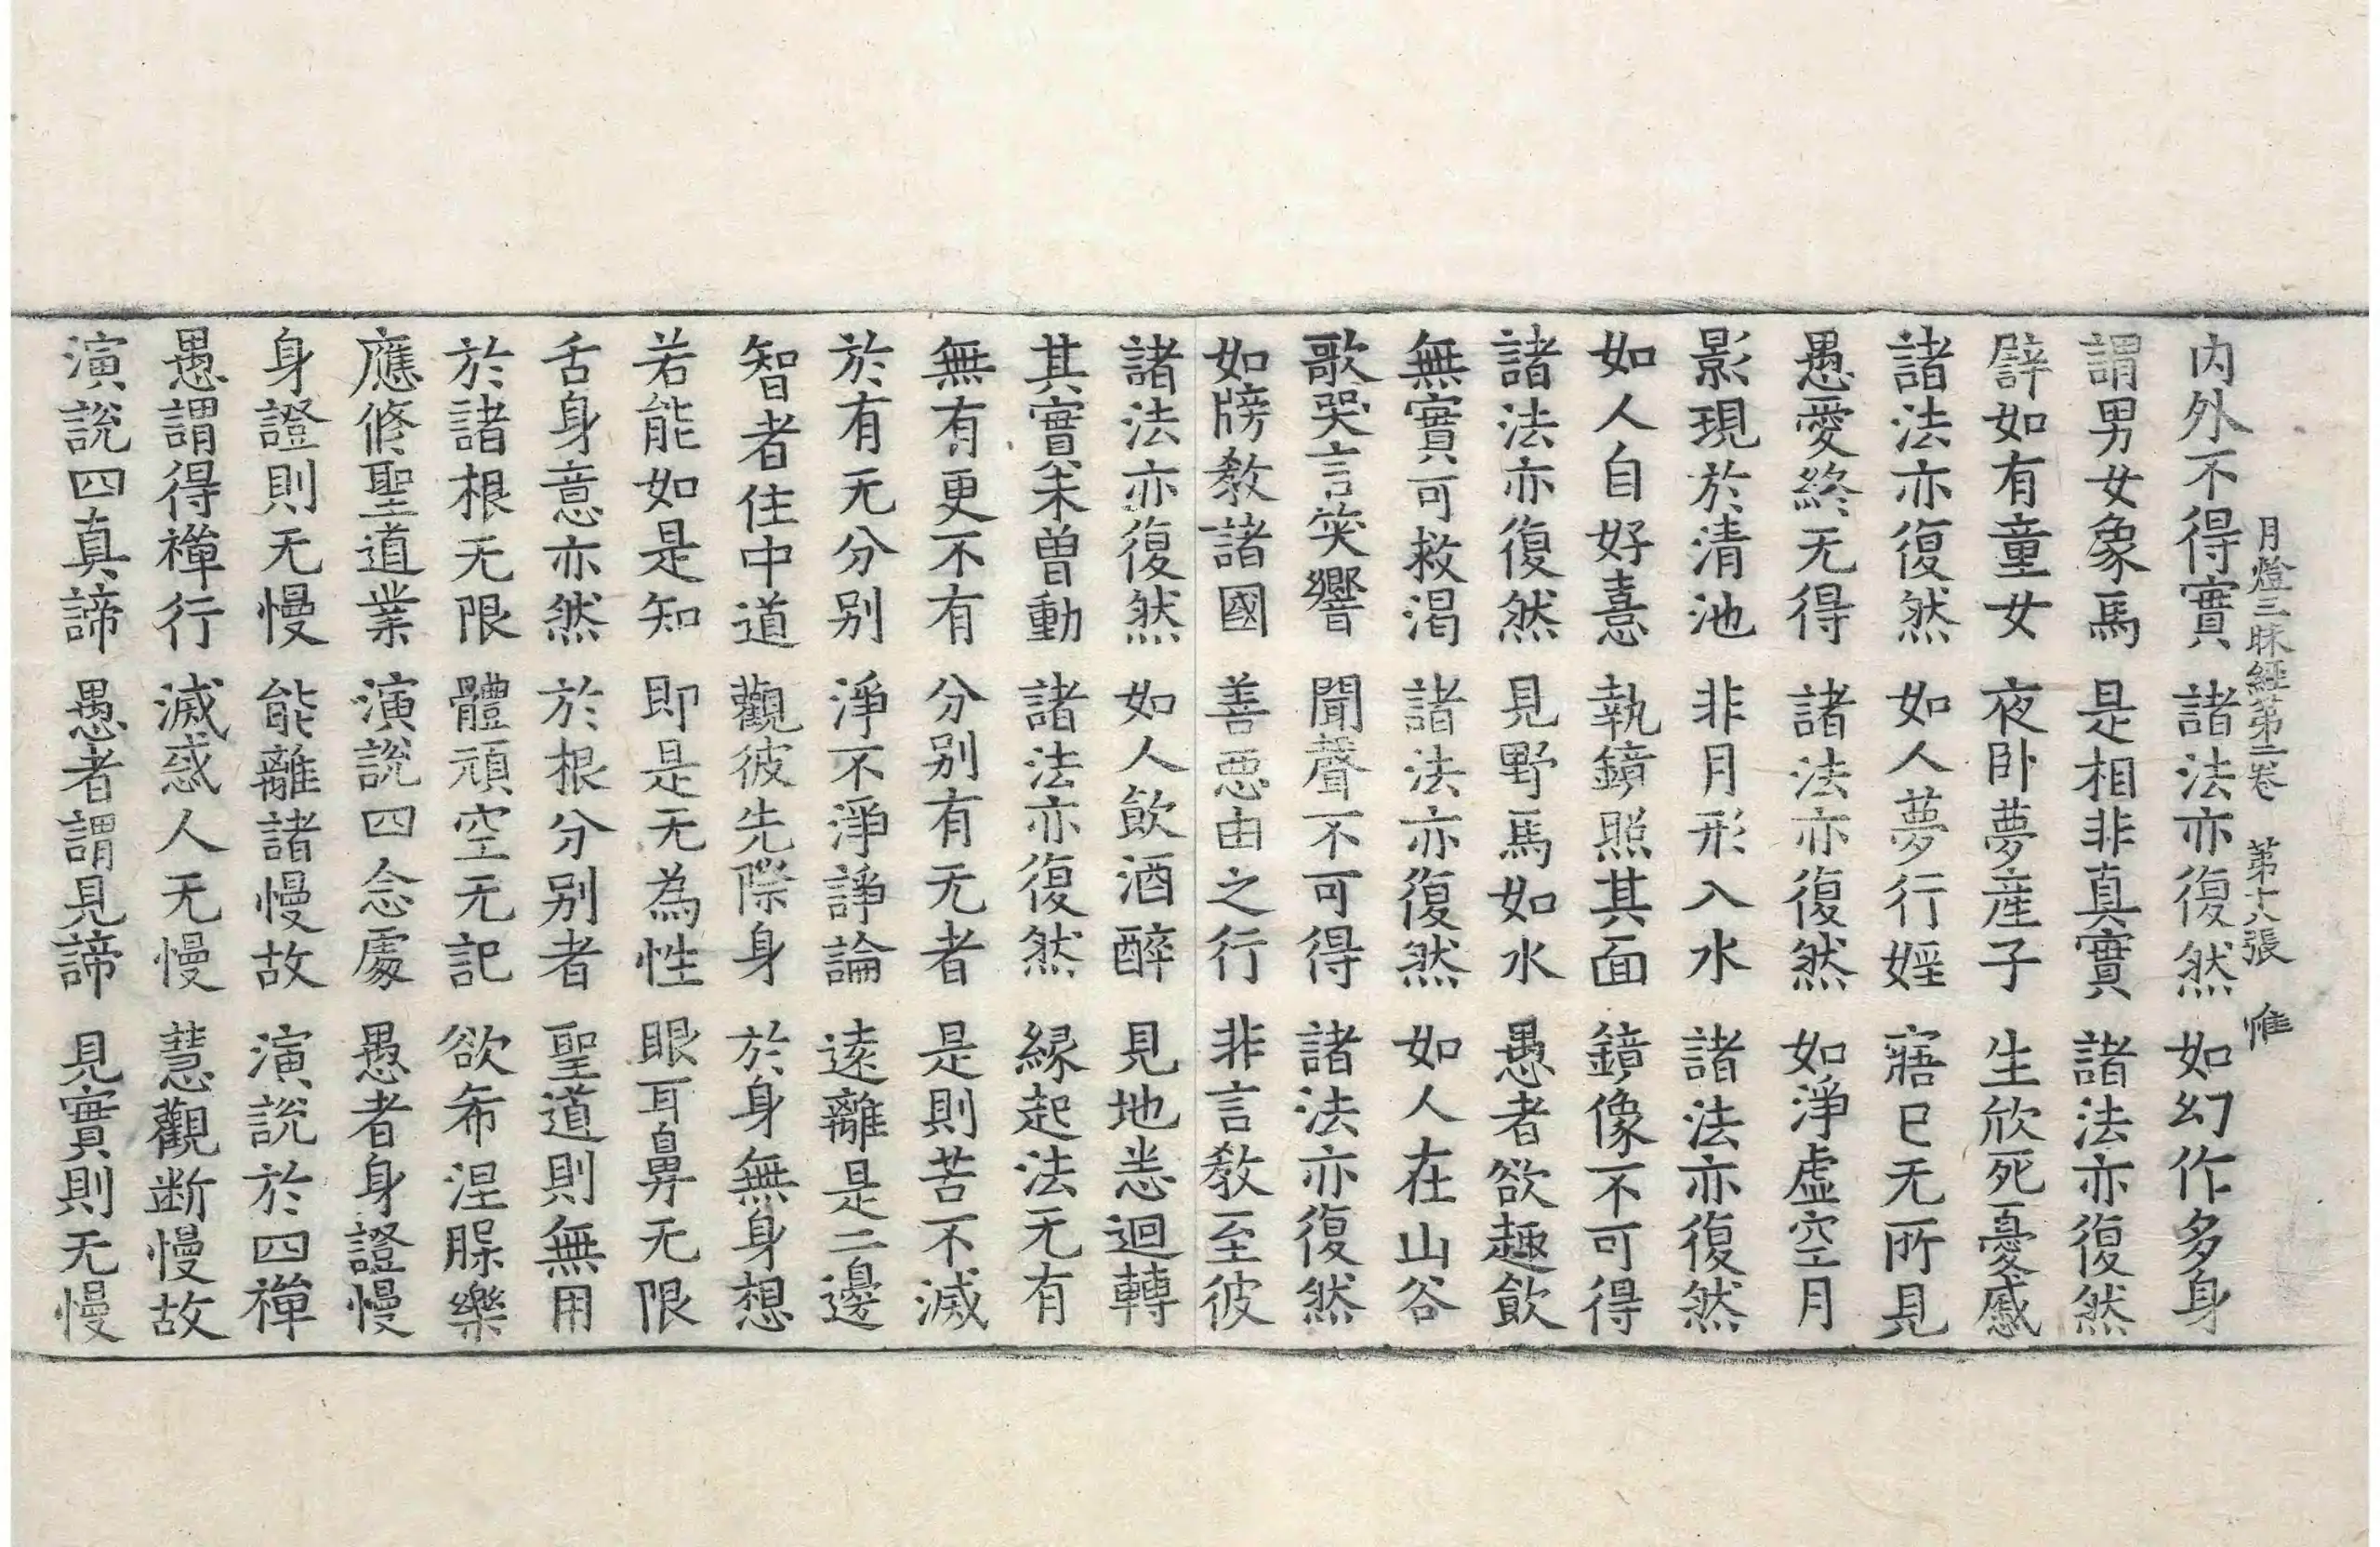 月燈三昧經第二卷　第十八張　惟
内外不得實　諸法亦復然　如幻作多身
謂男女象馬　是相非真實　諸法亦復然
譬如有童女　夜卧夢產子　生欣死憂慼
諸法亦復然　如人夢行婬　寤已无所見
愚愛終无得　諸法亦復然　如淨虛空月
影現於清池　非月形入水　諸法亦復然
如人自好憙　執鏡照其面　鏡像不可得
諸法亦復然　見野馬如水　愚者欲趣飲
無實可救渴　諸法亦復然　如人在山谷
歌哭言笑響　聞聲不可得　諸法亦復然
如牓教諸國　善惡由之行　非言教至彼
諸法亦復然　如人飲酒醉　見地悉迴轉
其實未曾動　諸法亦復然　緣起法无有
無有更不有　分別有无者　是則苦不滅
於有无分別　淨不淨諍論　遠離是二邊
智者住中道　觀彼先際身　於身無身想
若能如是知　即是无為性　眼耳鼻无限
舌身意亦然　於根分別者　聖道則無用
於諸根无限　體頑空无記　欲希涅槃樂
應修聖道業　演說四念處　愚者身證慢
身證則无慢　能離諸慢故　演說於四禪
愚謂得禪行　滅惑人无慢　慧觀断慢故
演說四真諦　愚者謂見諦　見實則无慢